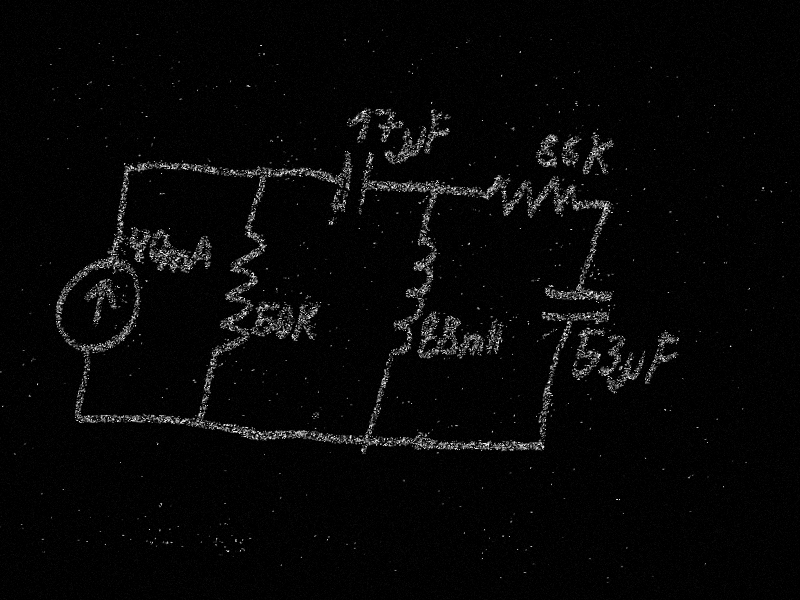 17μF
66K
40mA
50K
68mH
53μF